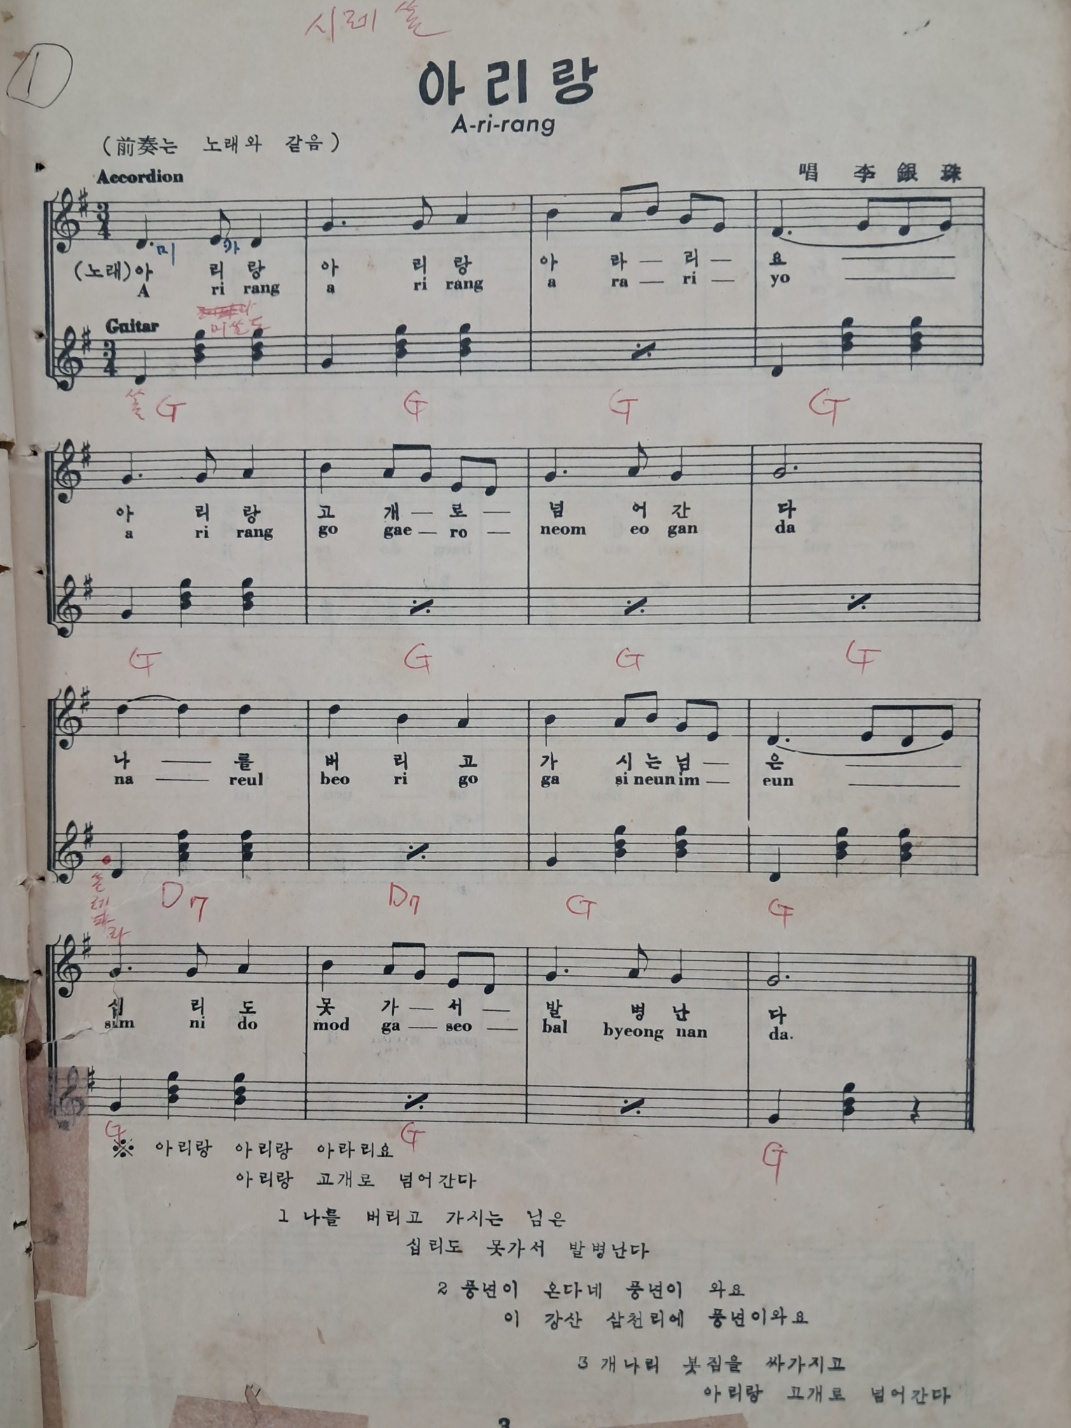 시레 솔
1
아리랑
A-ri-rang
(前奏는 노래와 같음)
Accordion
唱 李 銀 珠
미
(노래)아 리 랑 아 리 랑 아 라 — 리 — 요
A ri rang a ri rang a ra — ri — yo
Guitar
미솔도
솔 G G G G
아 리 랑 고 개 — 로 — 넘 어 간 다
a ri rang go gae — ro — neom eo gan da
G G G G
나 — 를 버 리 고 가 시 는 님 — 은
na — reul beo ri go ga si neun im — eun
솔
레
라
D7 D7 G G
십 리 도 못 가 — 서 — 발 병 난 다
sim ni do mod ga — seo — bal byeong nan da.
G G G
※ 아리랑 아리랑 아라리요
아리랑 고개로 넘어간다
1 나를 버리고 가시는 님은
십리도 못가서 발병난다
2 풍년이 온다네 풍년이 와요
이 강산 삼천리에 풍년이와요
3 개나리 봇짐을 싸가지고
아리랑 고개로 넘어간다
3